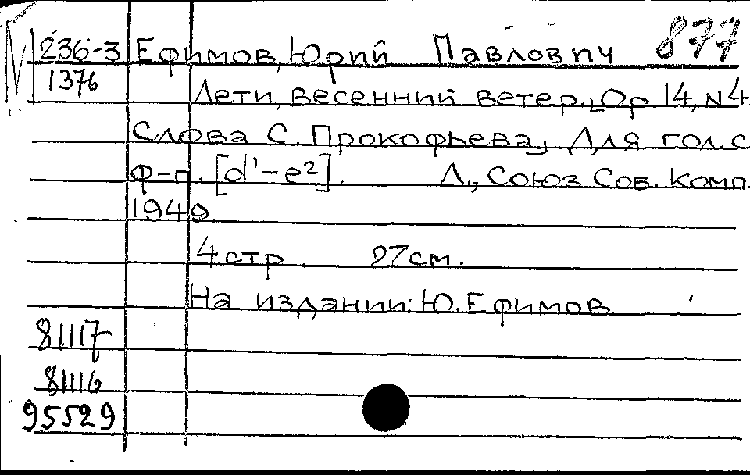 877
236-3 Ефимов, Юрий Павлович
1376 Лети, весенний ветер. Ор. 14, N4
Слова С. Прокофьева, Для гол. с
ф-п. [d¹-e²]. Л., Союз Сов. комп.
1949
4 стр. 27 см.
На издании: Ю. Ефимов
81117
81116
95529